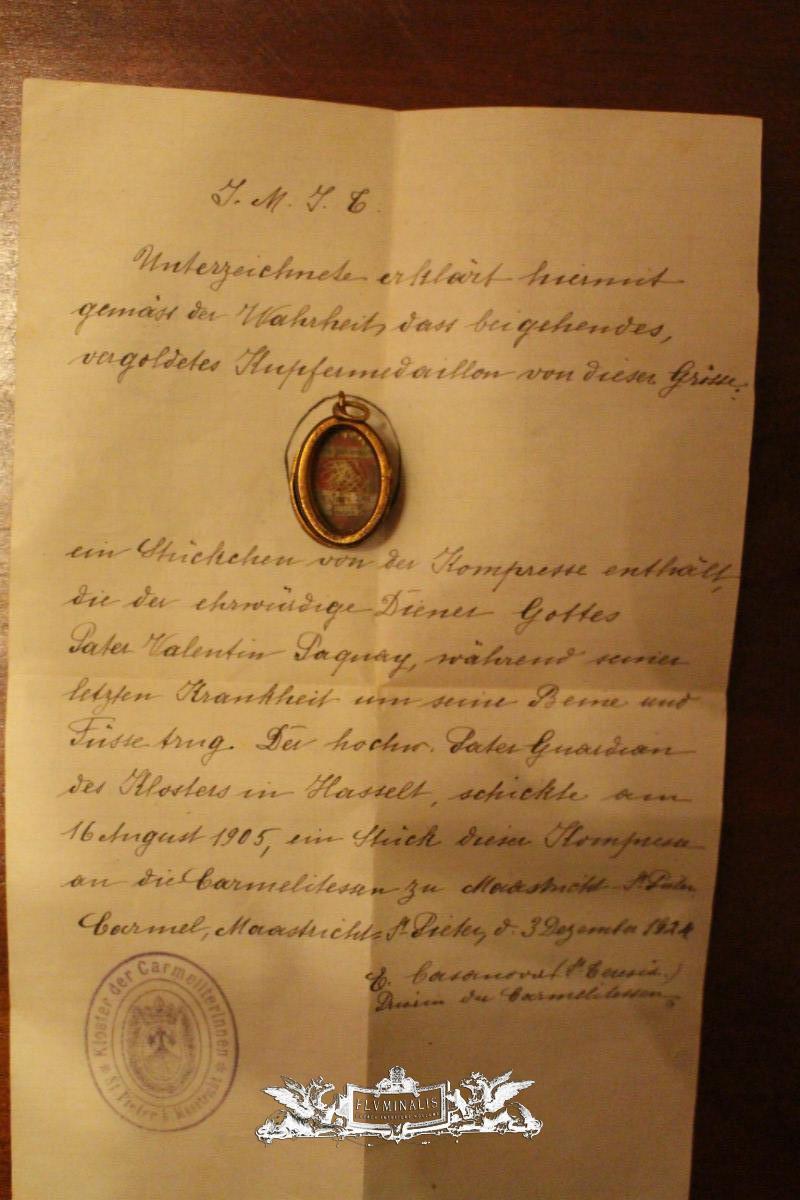 J. M. J. T.
Unterzeichnete erklärt hiermit
gemäss der Wahrheit, dass beigehendes,
vergoldetes Kupfermedaillon von dieser Grösse:
ein Stückchen von der Kompresse enthält,
die der ehrwürdige Diener Gottes
Pater Valentin Paquay, während seiner
letzten Krankheit um seine Beine und
Füsse trug. Der hochw. Pater Guardian
des Klosters in Hasselt, schickte am
16 August 1905, ein Stück dieser Kompresse
an die Carmelitessen zu Maastricht-St Pieter
Carmel, Maastricht-St Pieter, d. 3 Dezember 1924
E. Casanova (St Teresia.)
Priorin der Carmelitessen
Kloster der Carmeliterinnen
St. Pieter b. Mastricht
FLVMINALIS